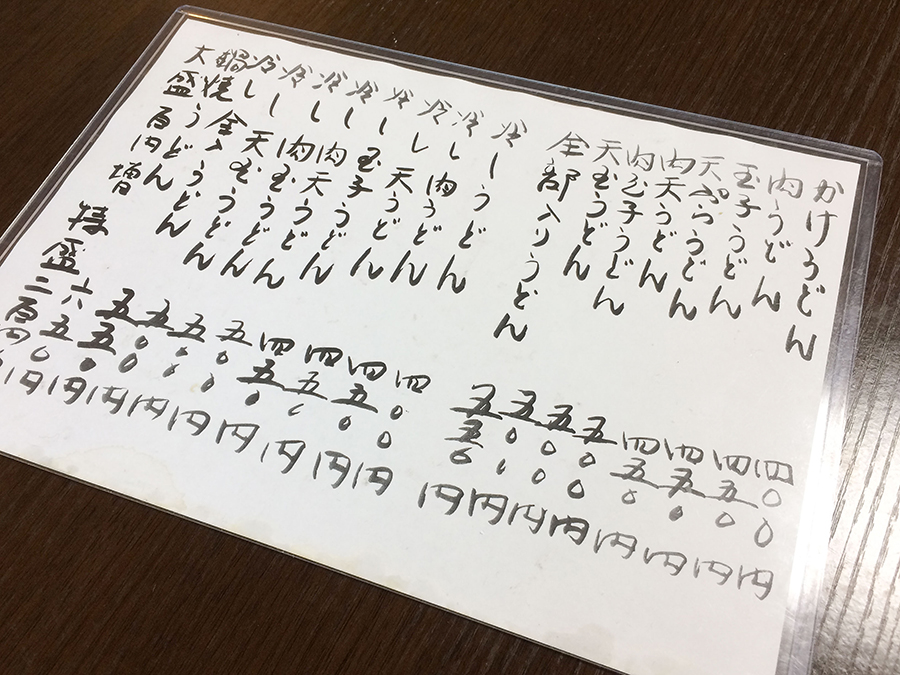 かけうどん 四〇〇円
肉うどん 四五〇円
玉子うどん 四五〇円
天ぷらうどん 四五〇円
肉天うどん 五〇〇円
肉玉子うどん 五〇〇円
天玉うどん 五〇〇円
全部入りうどん 五五〇円
冷しうどん 四〇〇円
冷し肉うどん 四五〇円
冷し天うどん 四五〇円
冷し玉子うどん 四五〇円
冷し肉天うどん 五〇〇円
冷し肉玉うどん 五〇〇円
冷し天玉うどん 五〇〇円
冷し全入うどん 五五〇円
鍋焼うどん 六五〇円
大盛百円増 特盛二百円